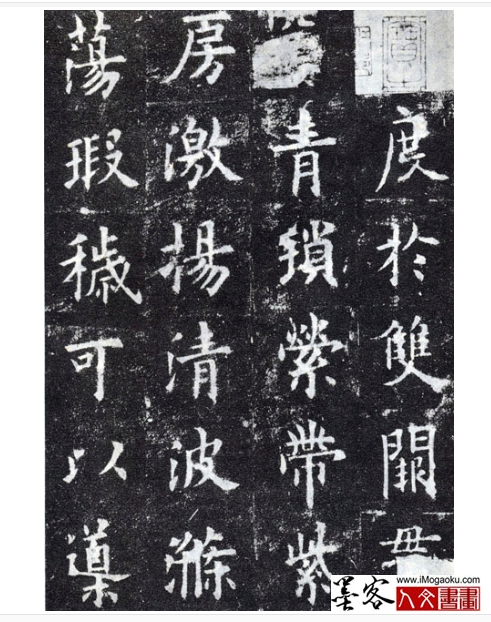 度於雙闕
青瑣縈帶紫
房激揚清波滌
蕩瑕穢可以導
墨客
www.iMogaoku.com
人文書畫